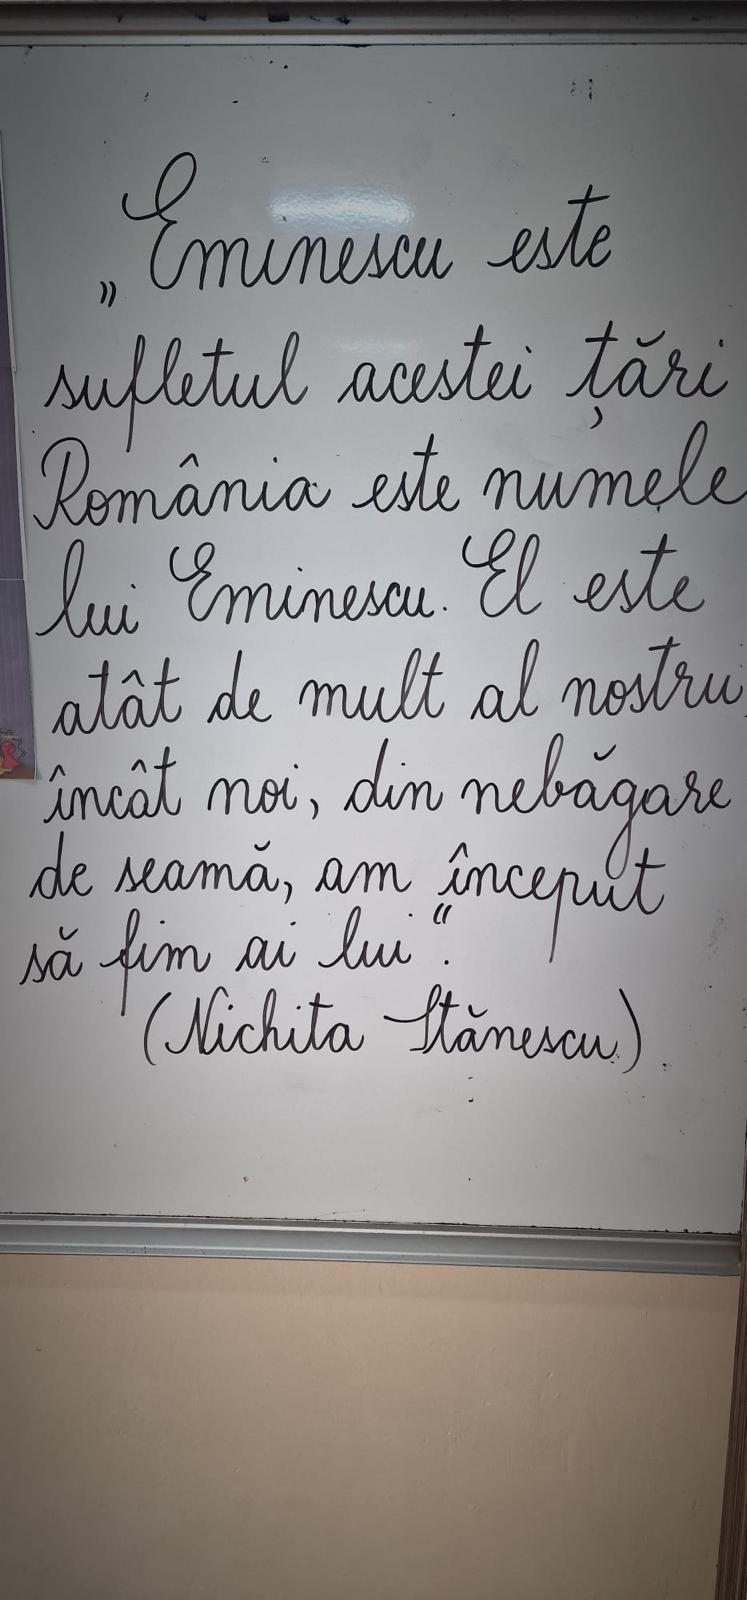 „Eminescu este
sufletul acestei țări
România este numele
lui Eminescu. El este
atât de mult al nostru
încât noi, din nebăgare
de seamă, am început
să fim ai lui“.
(Nichita Stănescu)